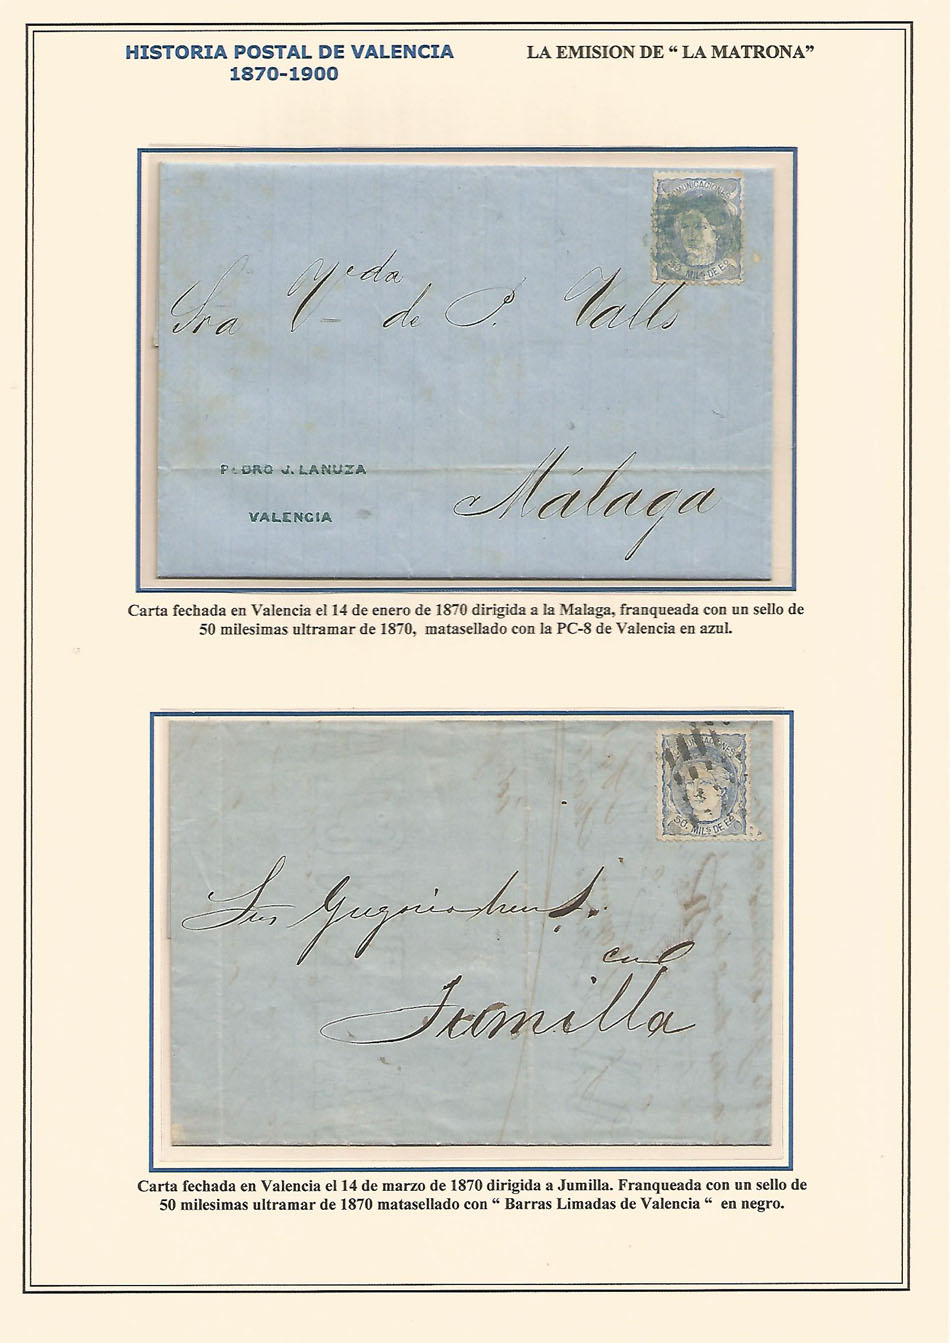 HISTORIA POSTAL DE VALENCIA
1870-1900
LA EMISION DE “ LA MATRONA”
COMUNICACIONES
50. MILS DE EO
Sra V eda de P. Valls
PEDRO J. LANUZA
VALENCIA
Málaga
Carta fechada en Valencia el 14 de enero de 1870 dirigida a la Malaga, franqueada con un sello de
50 milesimas ultramar de 1870, matasellado con la PC-8 de Valencia en azul.
COMUNICACIONES
50. MILS DE EO
en
Jumilla
Carta fechada en Valencia el 14 de marzo de 1870 dirigida a Jumilla. Franqueada con un sello de
50 milesimas ultramar de 1870 matasellado con “ Barras Limadas de Valencia “ en negro.